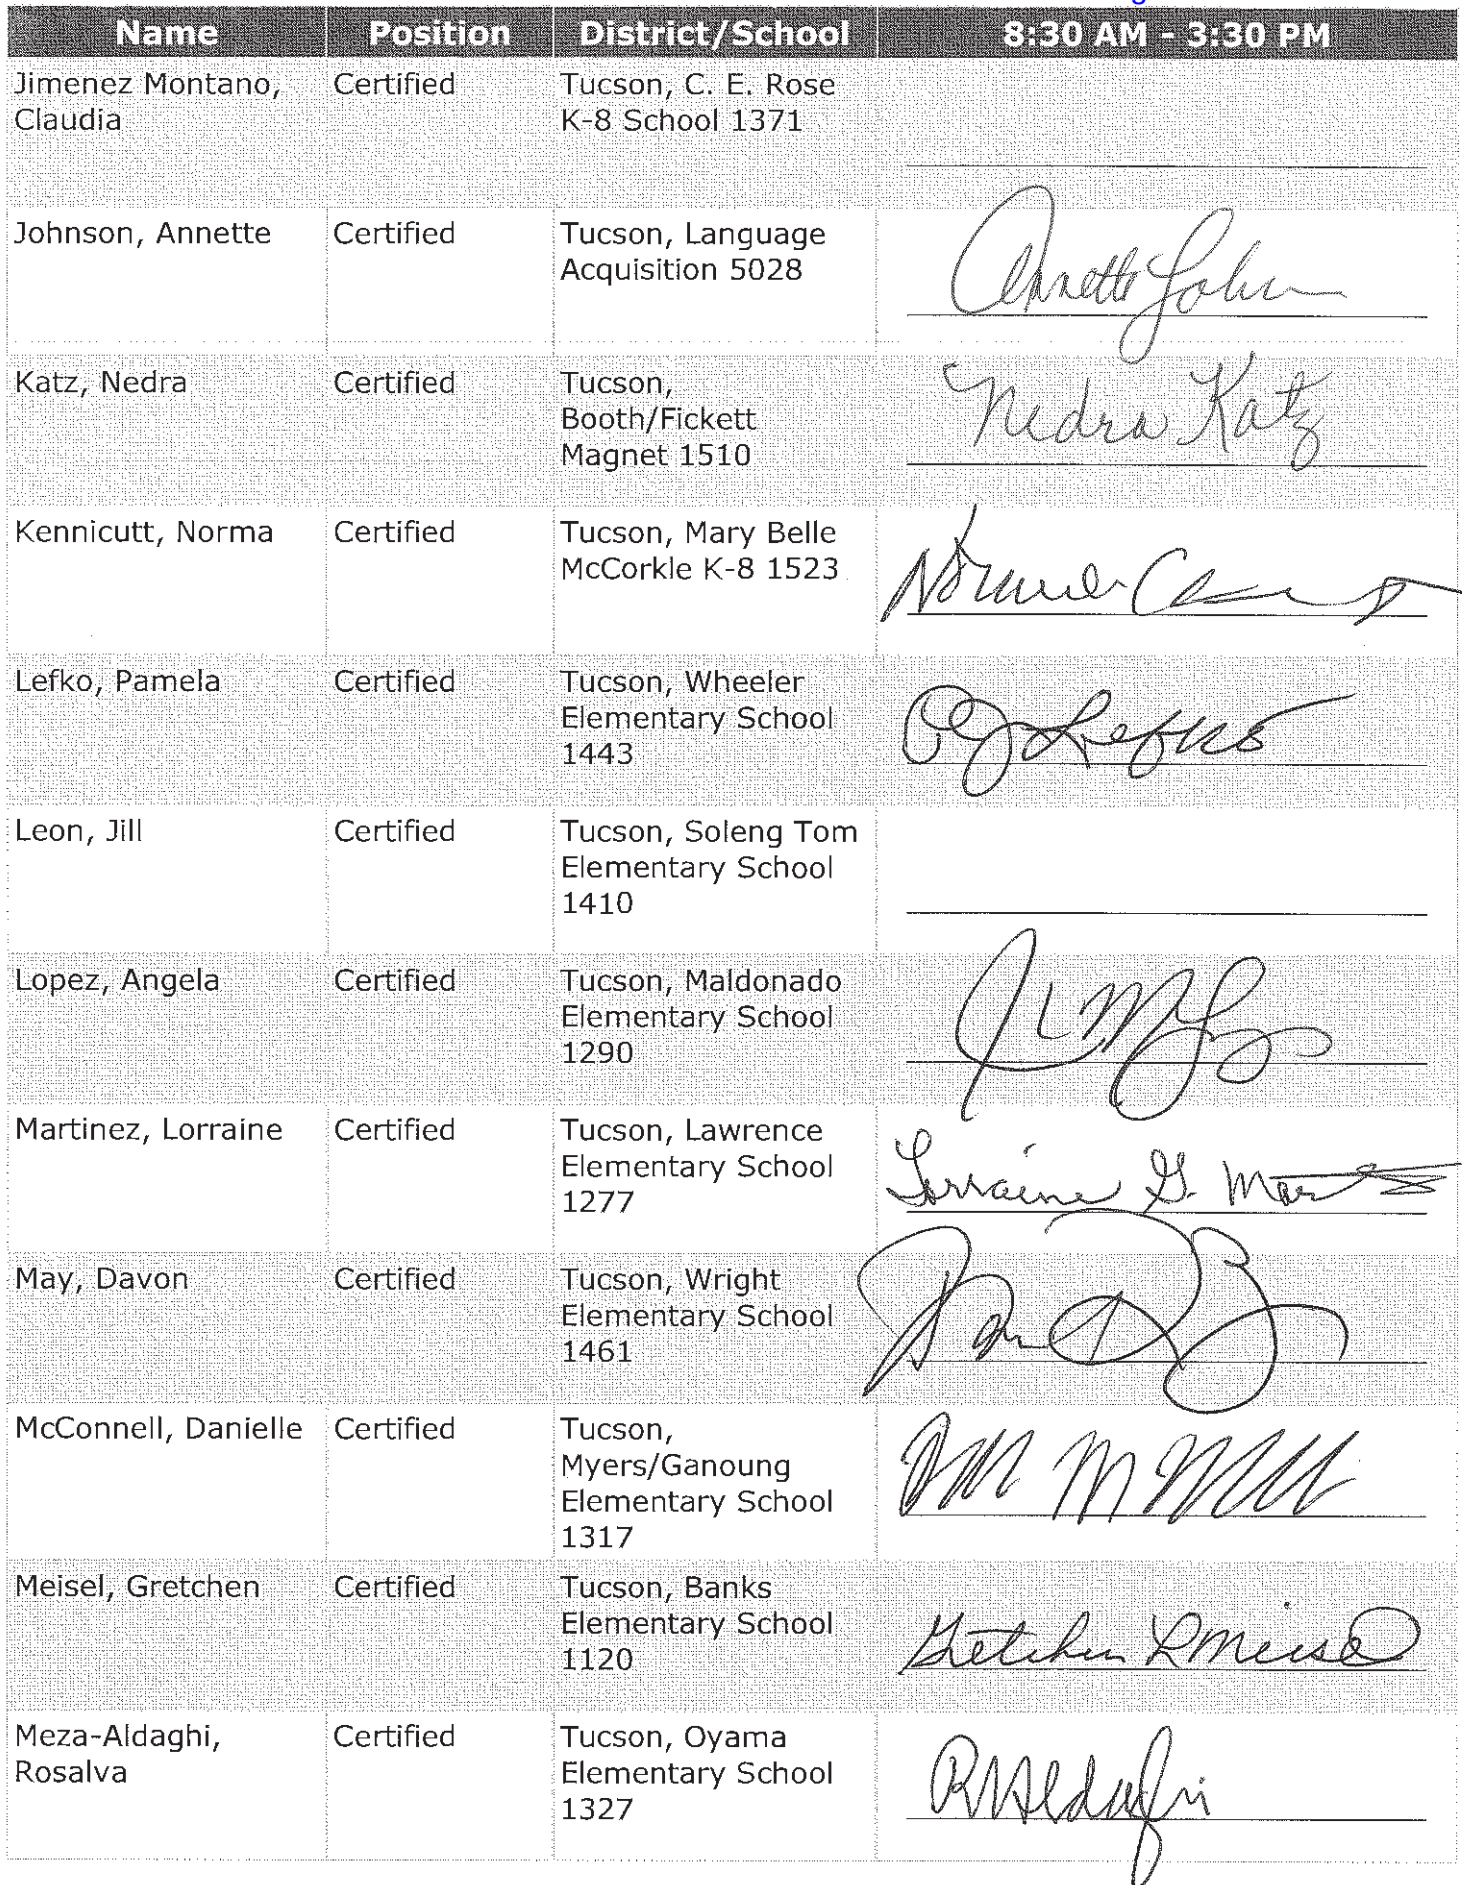 Name Position District/School 8:30 AM - 3:30 PM
Jimenez Montano, Certified Tucson, C. E. Rose
Claudia K-8 School 1371
Johnson, Annette Certified Tucson, Language
Acquisition 5028
Annette John
Katz, Nedra Certified Tucson,
Booth/Fickett
Magnet 1510
Nedra Katz
Kennicutt, Norma Certified Tucson, Mary Belle
McCorkle K-8 1523
Norma
Lefko, Pamela Certified Tucson, Wheeler
Elementary School
1443
Lefko
Leon, Jill Certified Tucson, Soleng Tom
Elementary School
1410
Lopez, Angela Certified Tucson, Maldonado
Elementary School
1290
Martinez, Lorraine Certified Tucson, Lawrence
Elementary School
1277
Lorraine G. Mart
May, Davon Certified Tucson, Wright
Elementary School
1461
McConnell, Danielle Certified Tucson,
Myers/Ganoung
Elementary School
1317
Meisel, Gretchen Certified Tucson, Banks
Elementary School
1120
Gretchen L Meisel
Meza-Aldaghi, Certified Tucson, Oyama
Rosalva Elementary School
1327
RMAldaghi